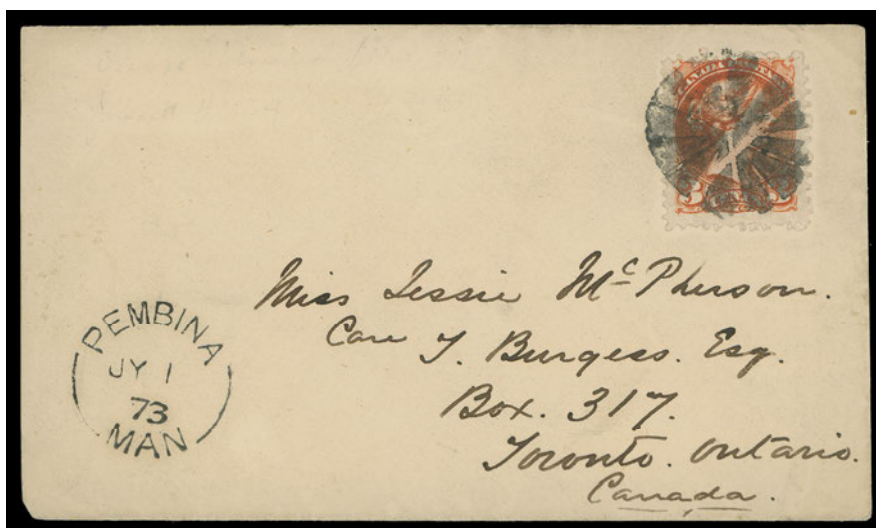 CANADA POSTAGE
3 3
Miss Jessie Mc Pherson.
Care J. Burgess. Esq.
Box. 317.
Toronto. Ontario.
Canada.
PEMBINA
JY 1
73
MAN